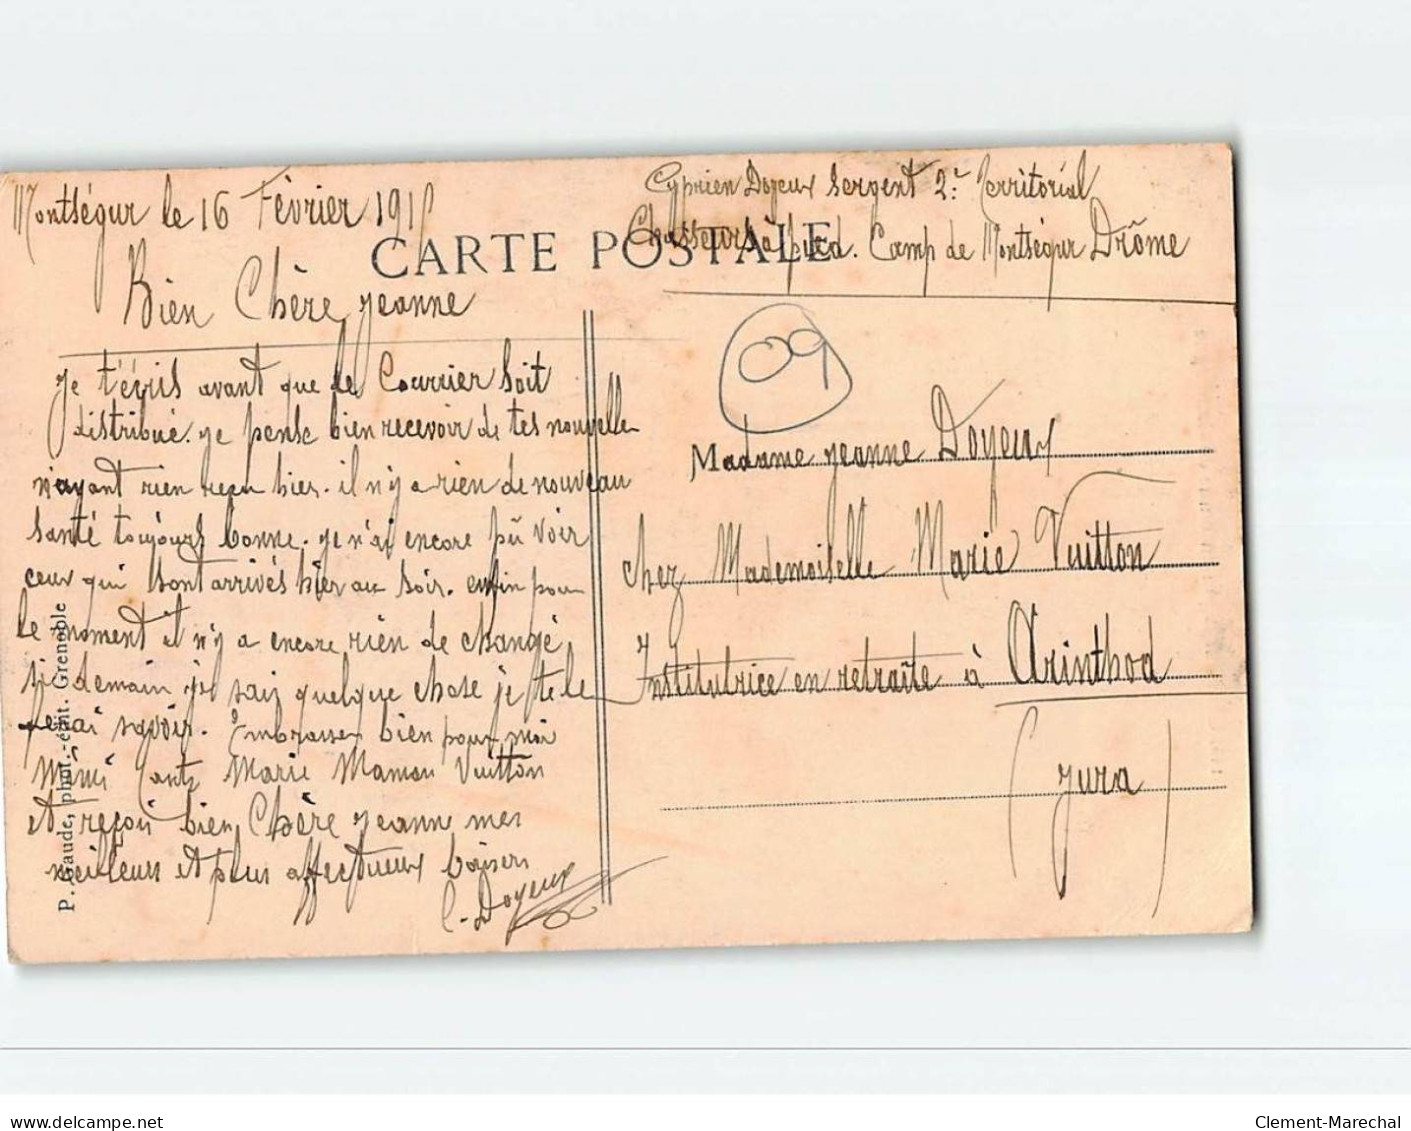 Montségur le 16 Février 191
Cyprien Doyeux Sergent 2e Territorial
Chasseurs à pied. Camp de Montségur Drôme
CARTE POSTALE
Bien Chère Jeanne
Je t'écris avant que le Courrier soit
distribué. je pense bien recevoir de tes nouvelle
n'ayant rien reçu hier. il n'y a rien de nouveau
santé toujours bonne. je n'ai encore pu voir
ceux qui sont arrivés hier au soir. enfin pour
le moment il n'y a encore rien de changé
si demain je sais quelque chose je te le
ferai savoir. Embrasse bien pour moi
Mimi tante Marie Maman Vuitton
et reçois bien Chère Jeanne mes
meilleurs et plus affectueux baisers
C. Doyeux
09
Madame Jeanne Doyeux
chez Mademoiselle Marie Vuitton
Institutrice en retraite à Arinthod
(Jura)
P. Gaude, phot.-édit. Grenoble
delcampe.net
Clement-Marechal